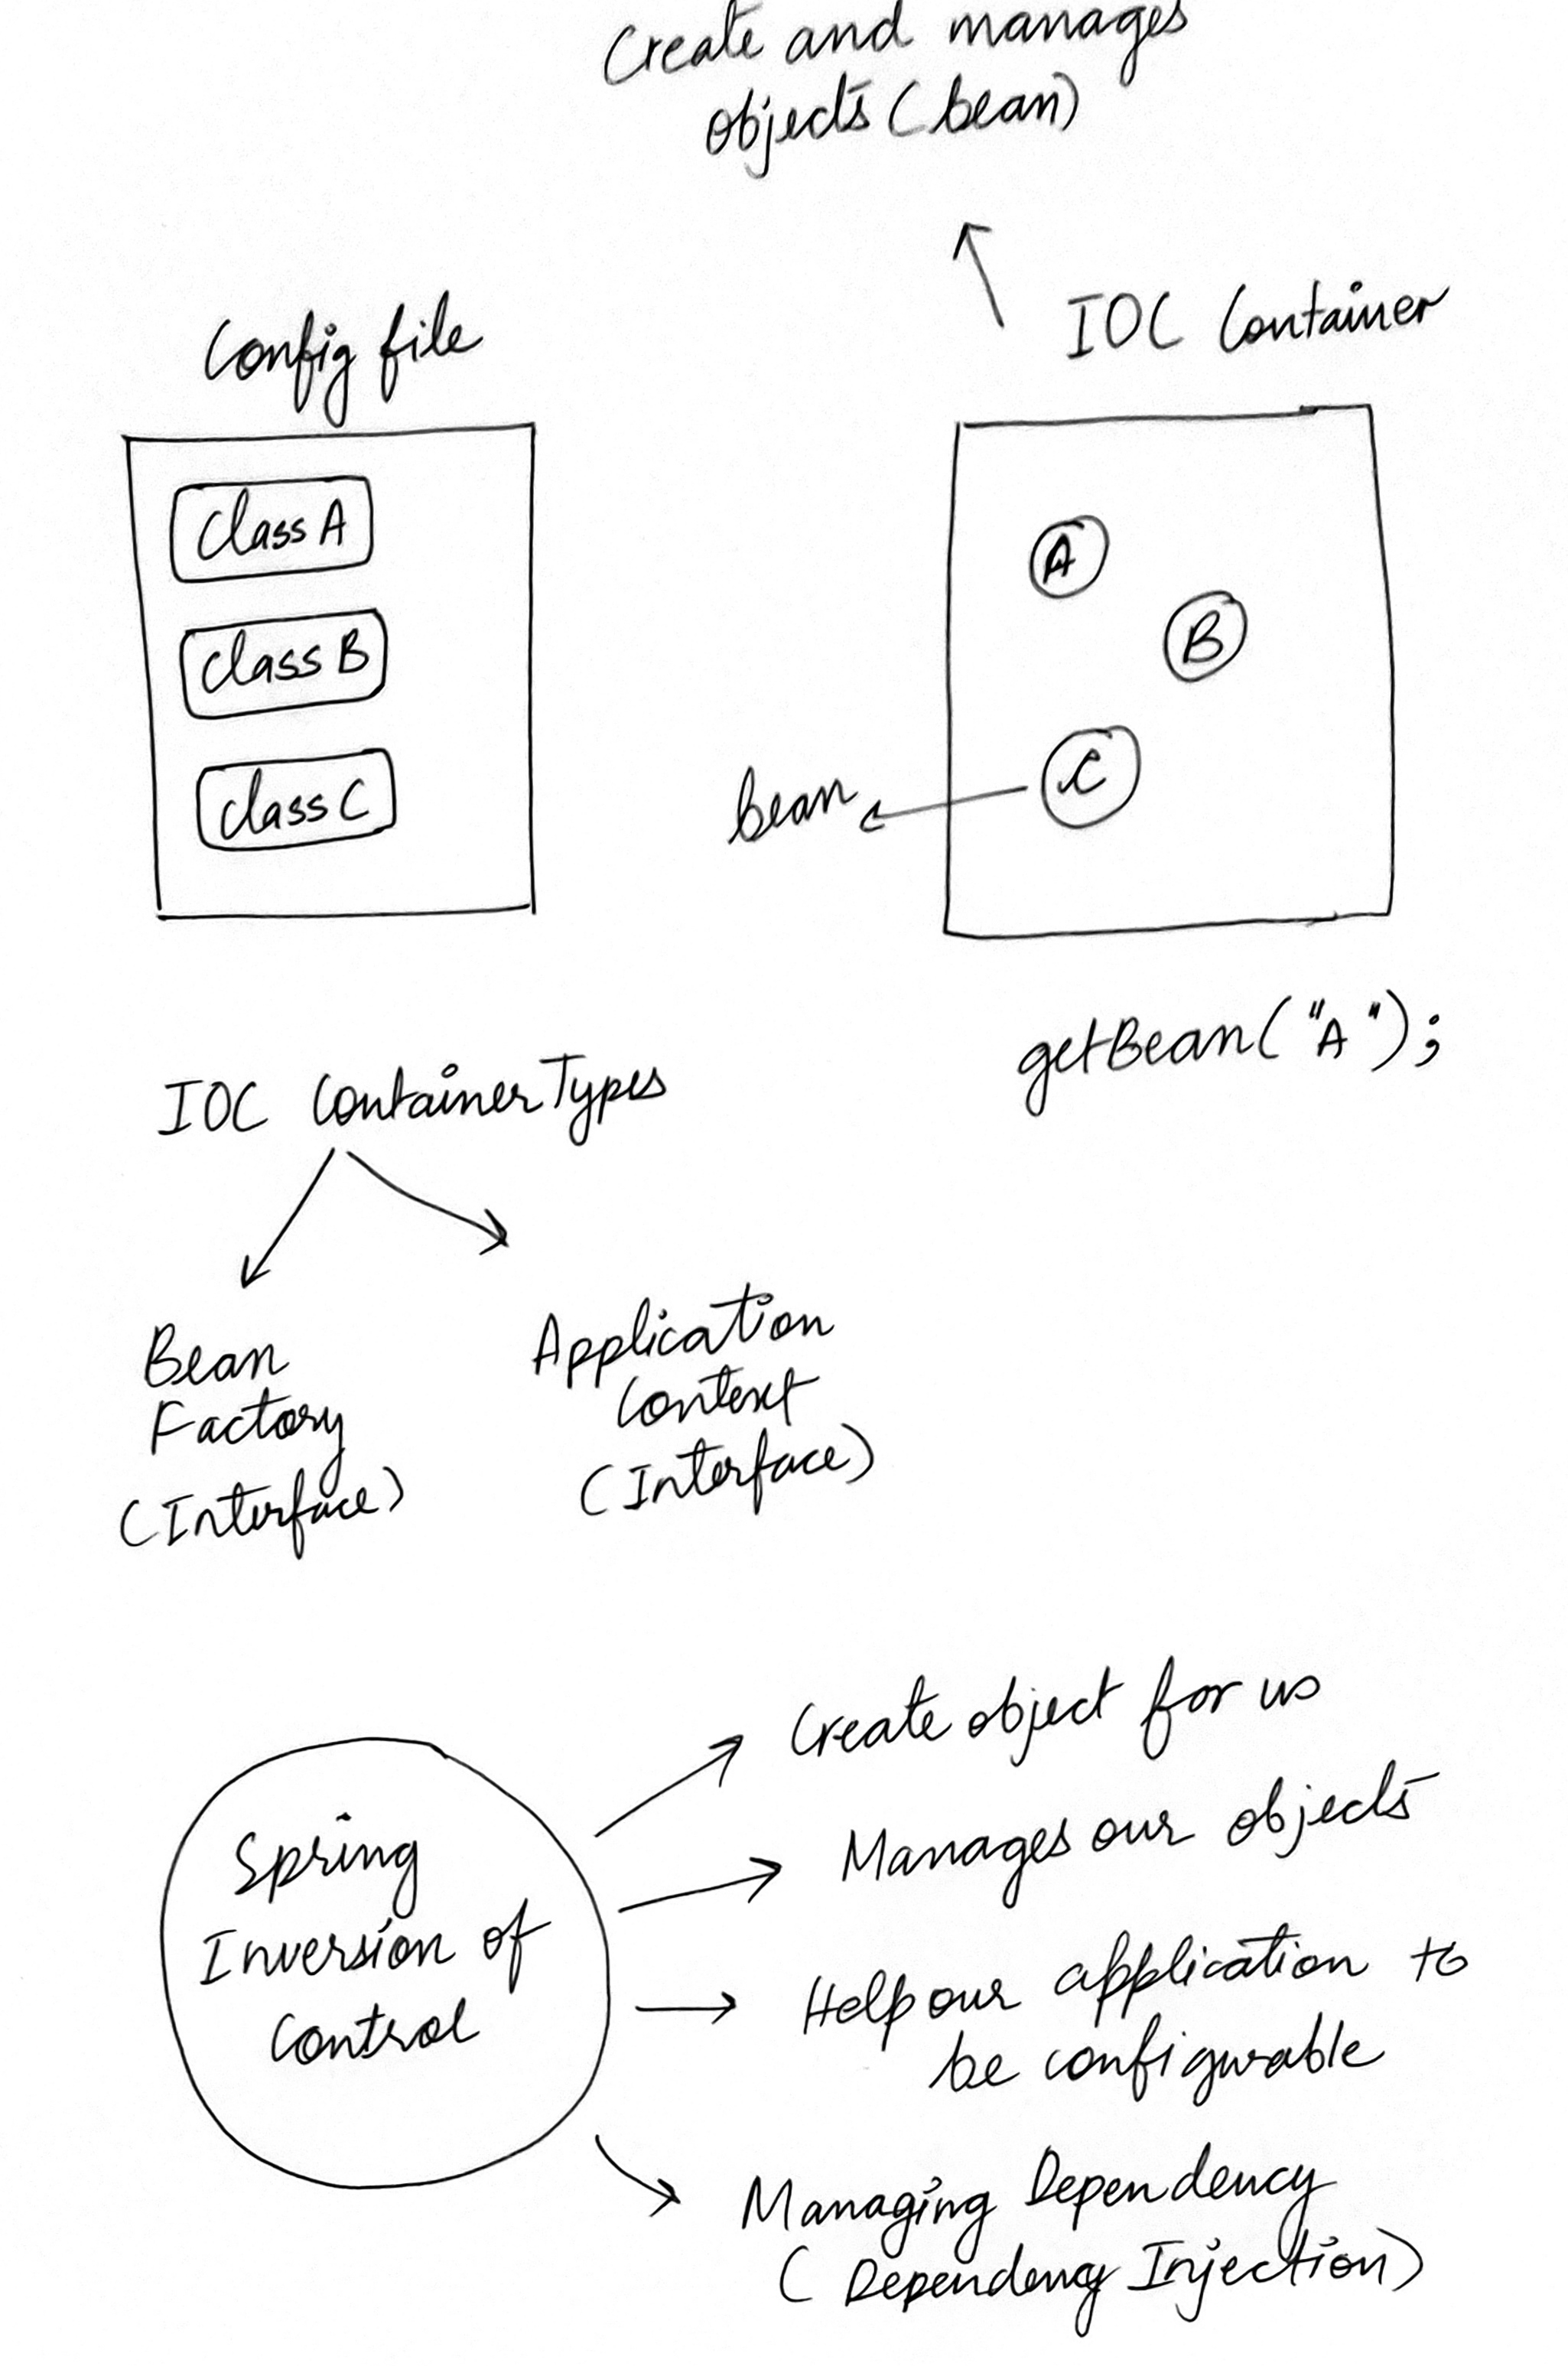 Create and manages
objects (bean)
Config file
IOC Container
Class A
Class B
Class C
A
B
C
bean
getBean("A");
IOC Container Types
Bean
Factory
(Interface)
Application
Context
(Interface)
Spring
Inversion of
Control
Create object for us
Manages our objects
Help our application to
be configurable
Managing Dependency
(Dependency Injection)